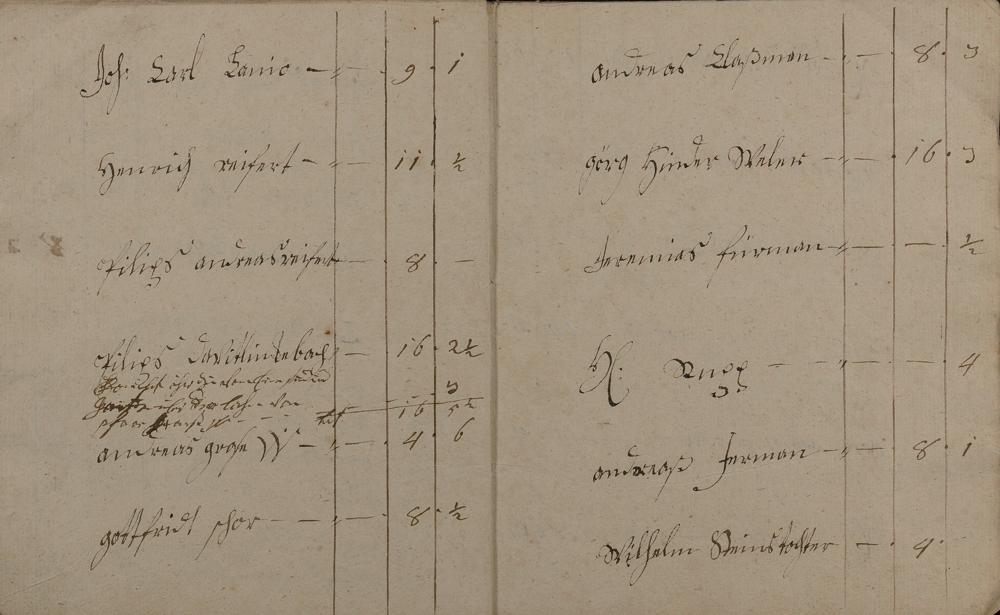 Joh: Carl Lanio — „ — 9 · 1
Henrich reifert — „ — 11 · ½
Filips andreas reifert — 8 —
Filips davit linkebach — 16 · 2½
3
tut 16 5½
andreas große — „ — 4 · 6
gottfridt schor — „ — 8 · ½
andreas Claßman — „ — 8 · 3
görg Hinder Weler — „ — 16 · 3
Jeremias fürman „ — — ½
H: Rupp — „ — — 4
andreas Jerman — „ — 8 · 1
Wilhelm Steinstochter — 4 ·